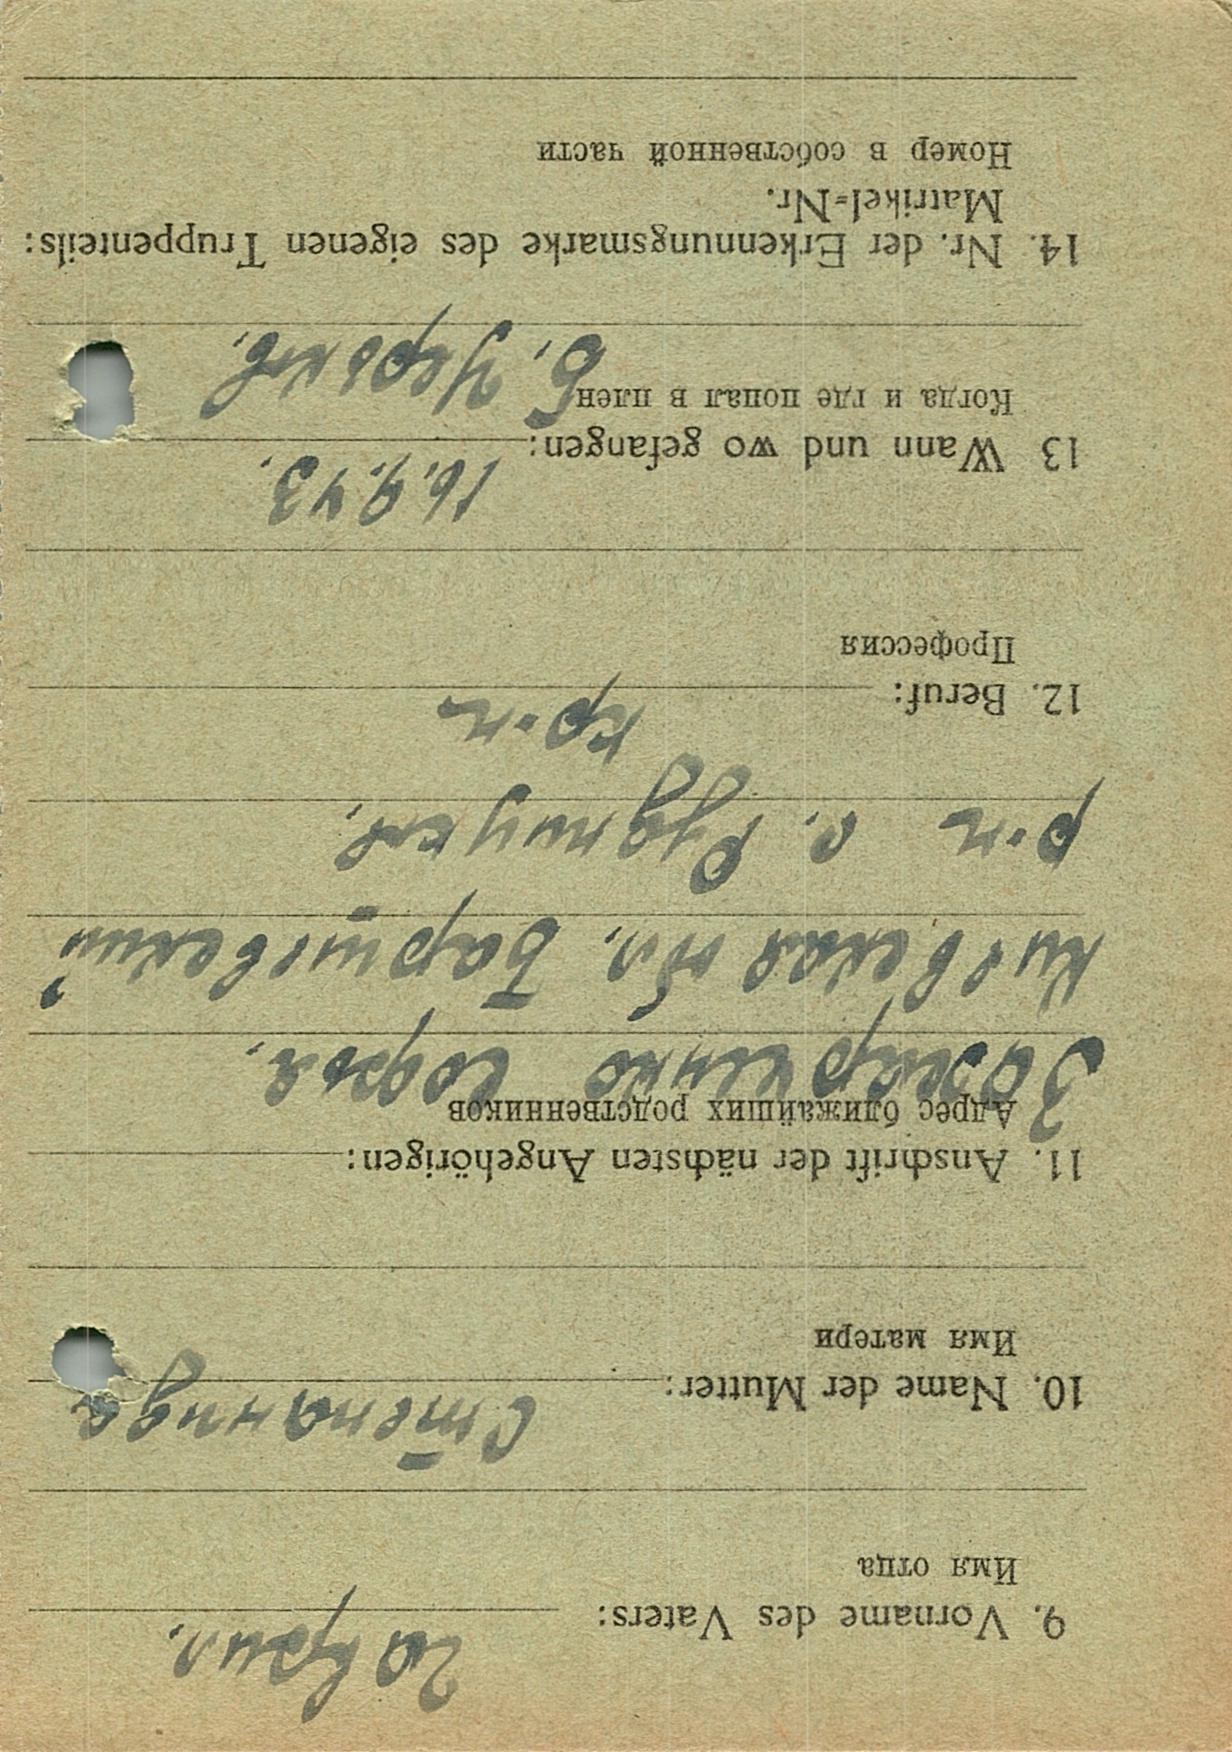 9. Vorname des Vaters: Гаврил.
Имя отца
10. Name der Mutter: Степанида
Имя матери
11. Anschrift der nächsten Angehörigen:
Адрес ближайших родственников
Захарченко Софья.
Киевская обл. Барышевский
р-н с. Рудницкое.
12. Beruf: кр-н
Профессия
13 Wann und wo gefangen: 16.9.43.
Когда и где попал в плен
14. Nr. der Erkennungsmarke des eigenen Truppenteils:
Matrikel-Nr.
Номер в собственной части